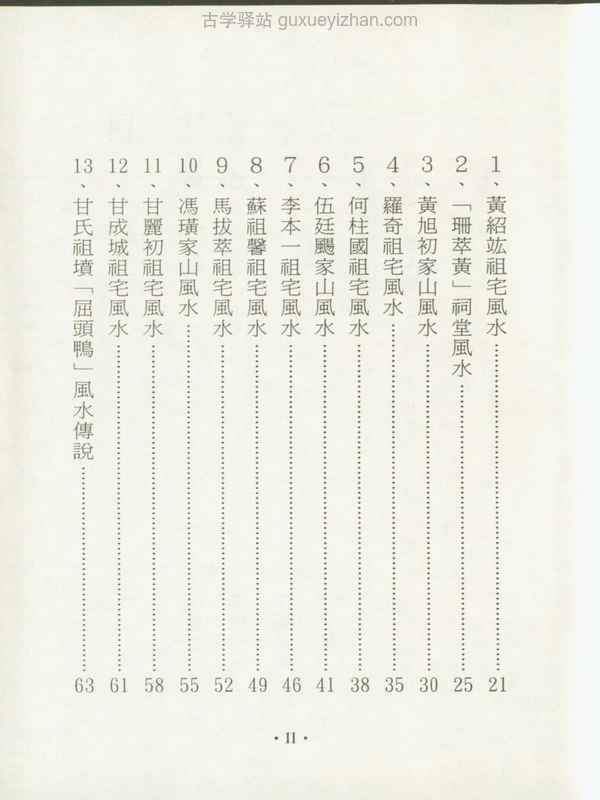 古学驿站 guxueyizhan.com
1、黃紹竑祖宅風水……21
2、「珊萃黃」祠堂風水……25
3、黃旭初家山風水……30
4、羅奇祖宅風水……35
5、何柱國祖宅風水……38
6、伍廷颺家山風水……41
7、李本一祖宅風水……46
8、蘇祖馨祖宅風水……49
9、馬拔萃祖宅風水……52
10、馮璜家山風水……55
11、甘麗初祖宅風水……58
12、甘成城祖宅風水……61
13、甘氏祖墳「屈頭鴨」風水傳說……63
·11·